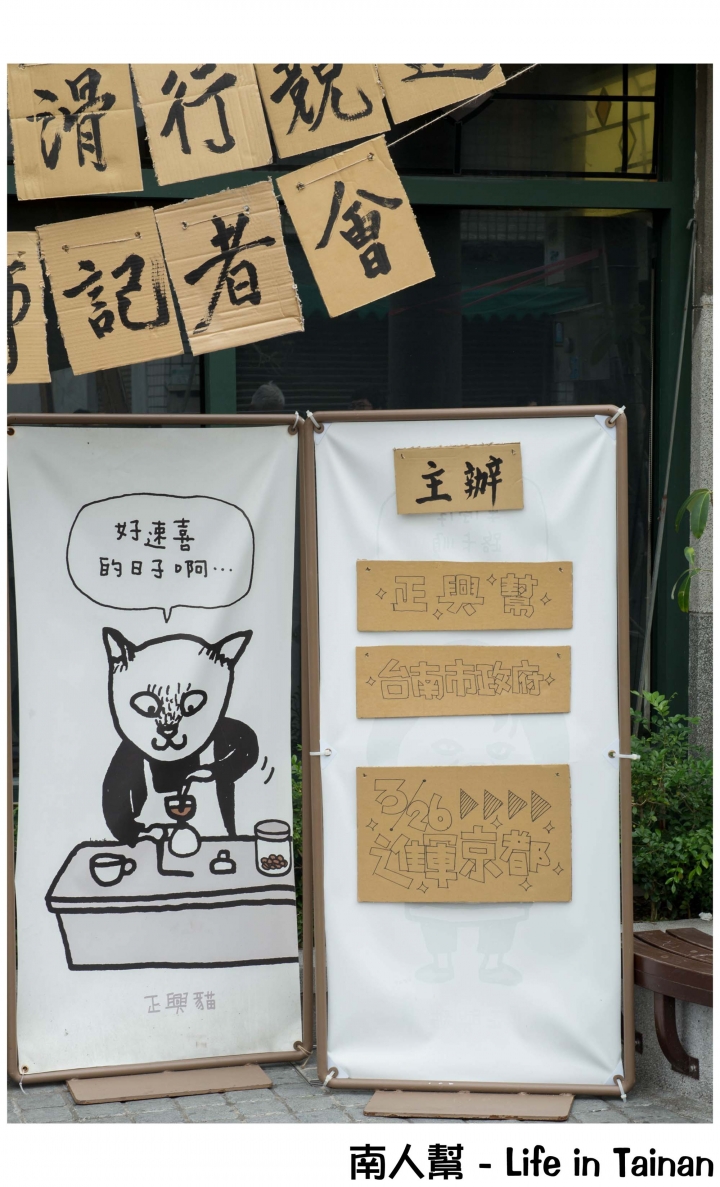 滑行競
記者會
好速喜
的日子啊…
正興貓
主辦
正興幫
台南市政府
3/26
進軍京都
南人幫 - Life in Tainan